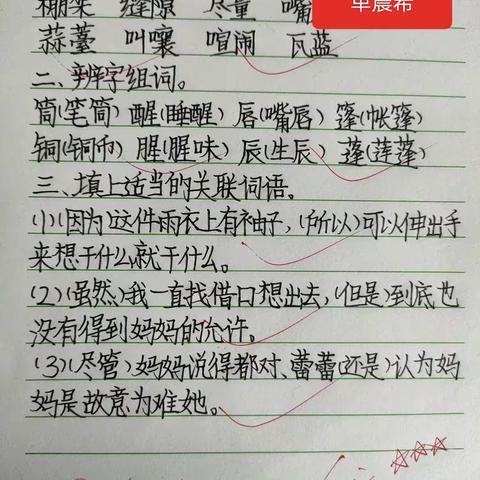 棚架 缝隙 尽量 嘴
单晨希
蒜薹 叫嚷 喧闹 瓦蓝
二、辨字组词。
筒(笔筒) 醒(睡醒) 唇(嘴唇) 篷(帐篷)
铜(铜币) 腥(腥味) 辰(生辰) 蓬(莲蓬)
三、填上适当的关联词语。
(1)(因为)这件雨衣上有袖子,(所以)可以伸出手
来想干什么就干什么。
(2)(虽然)我一直找借口想出去,(但是)到底也
没有得到妈妈的允许。
(3)(尽管)妈妈说得都对、蕾蕾(还是)认为妈
妈是故意为难她。